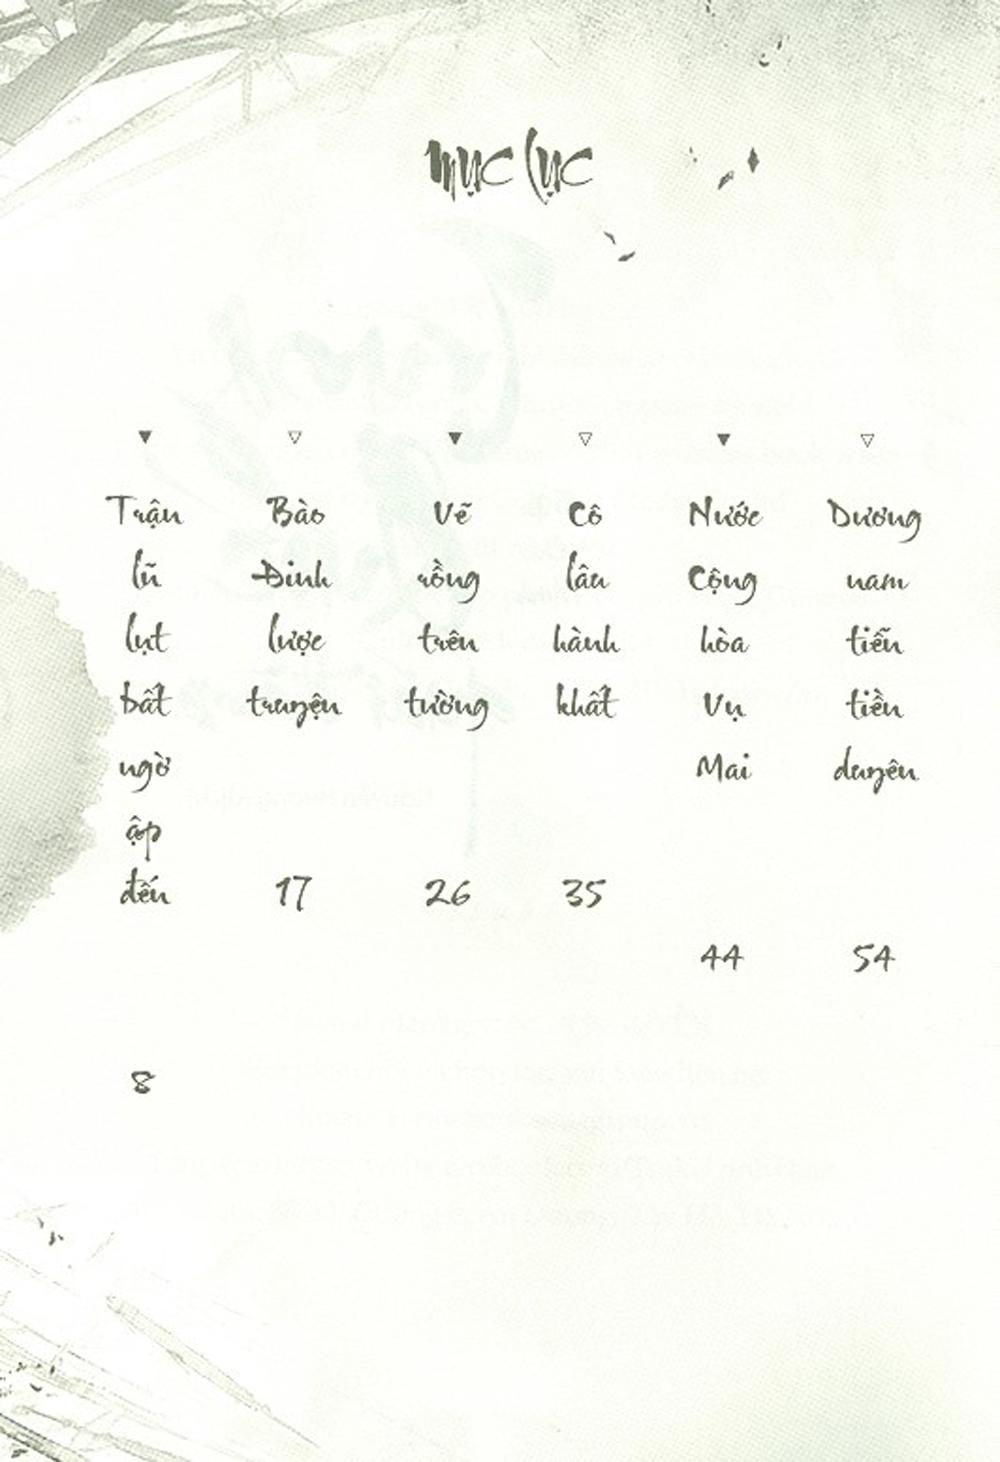 Mục lục
Trận lũ lụt bất ngờ ập đến
8
Bào Đinh lược truyện
17
Vẽ rồng trên tường
26
Cô lâu hành khất
35
Nước Cộng hòa Vụ Mai
44
Dương nam tiễn tiền duyên
54